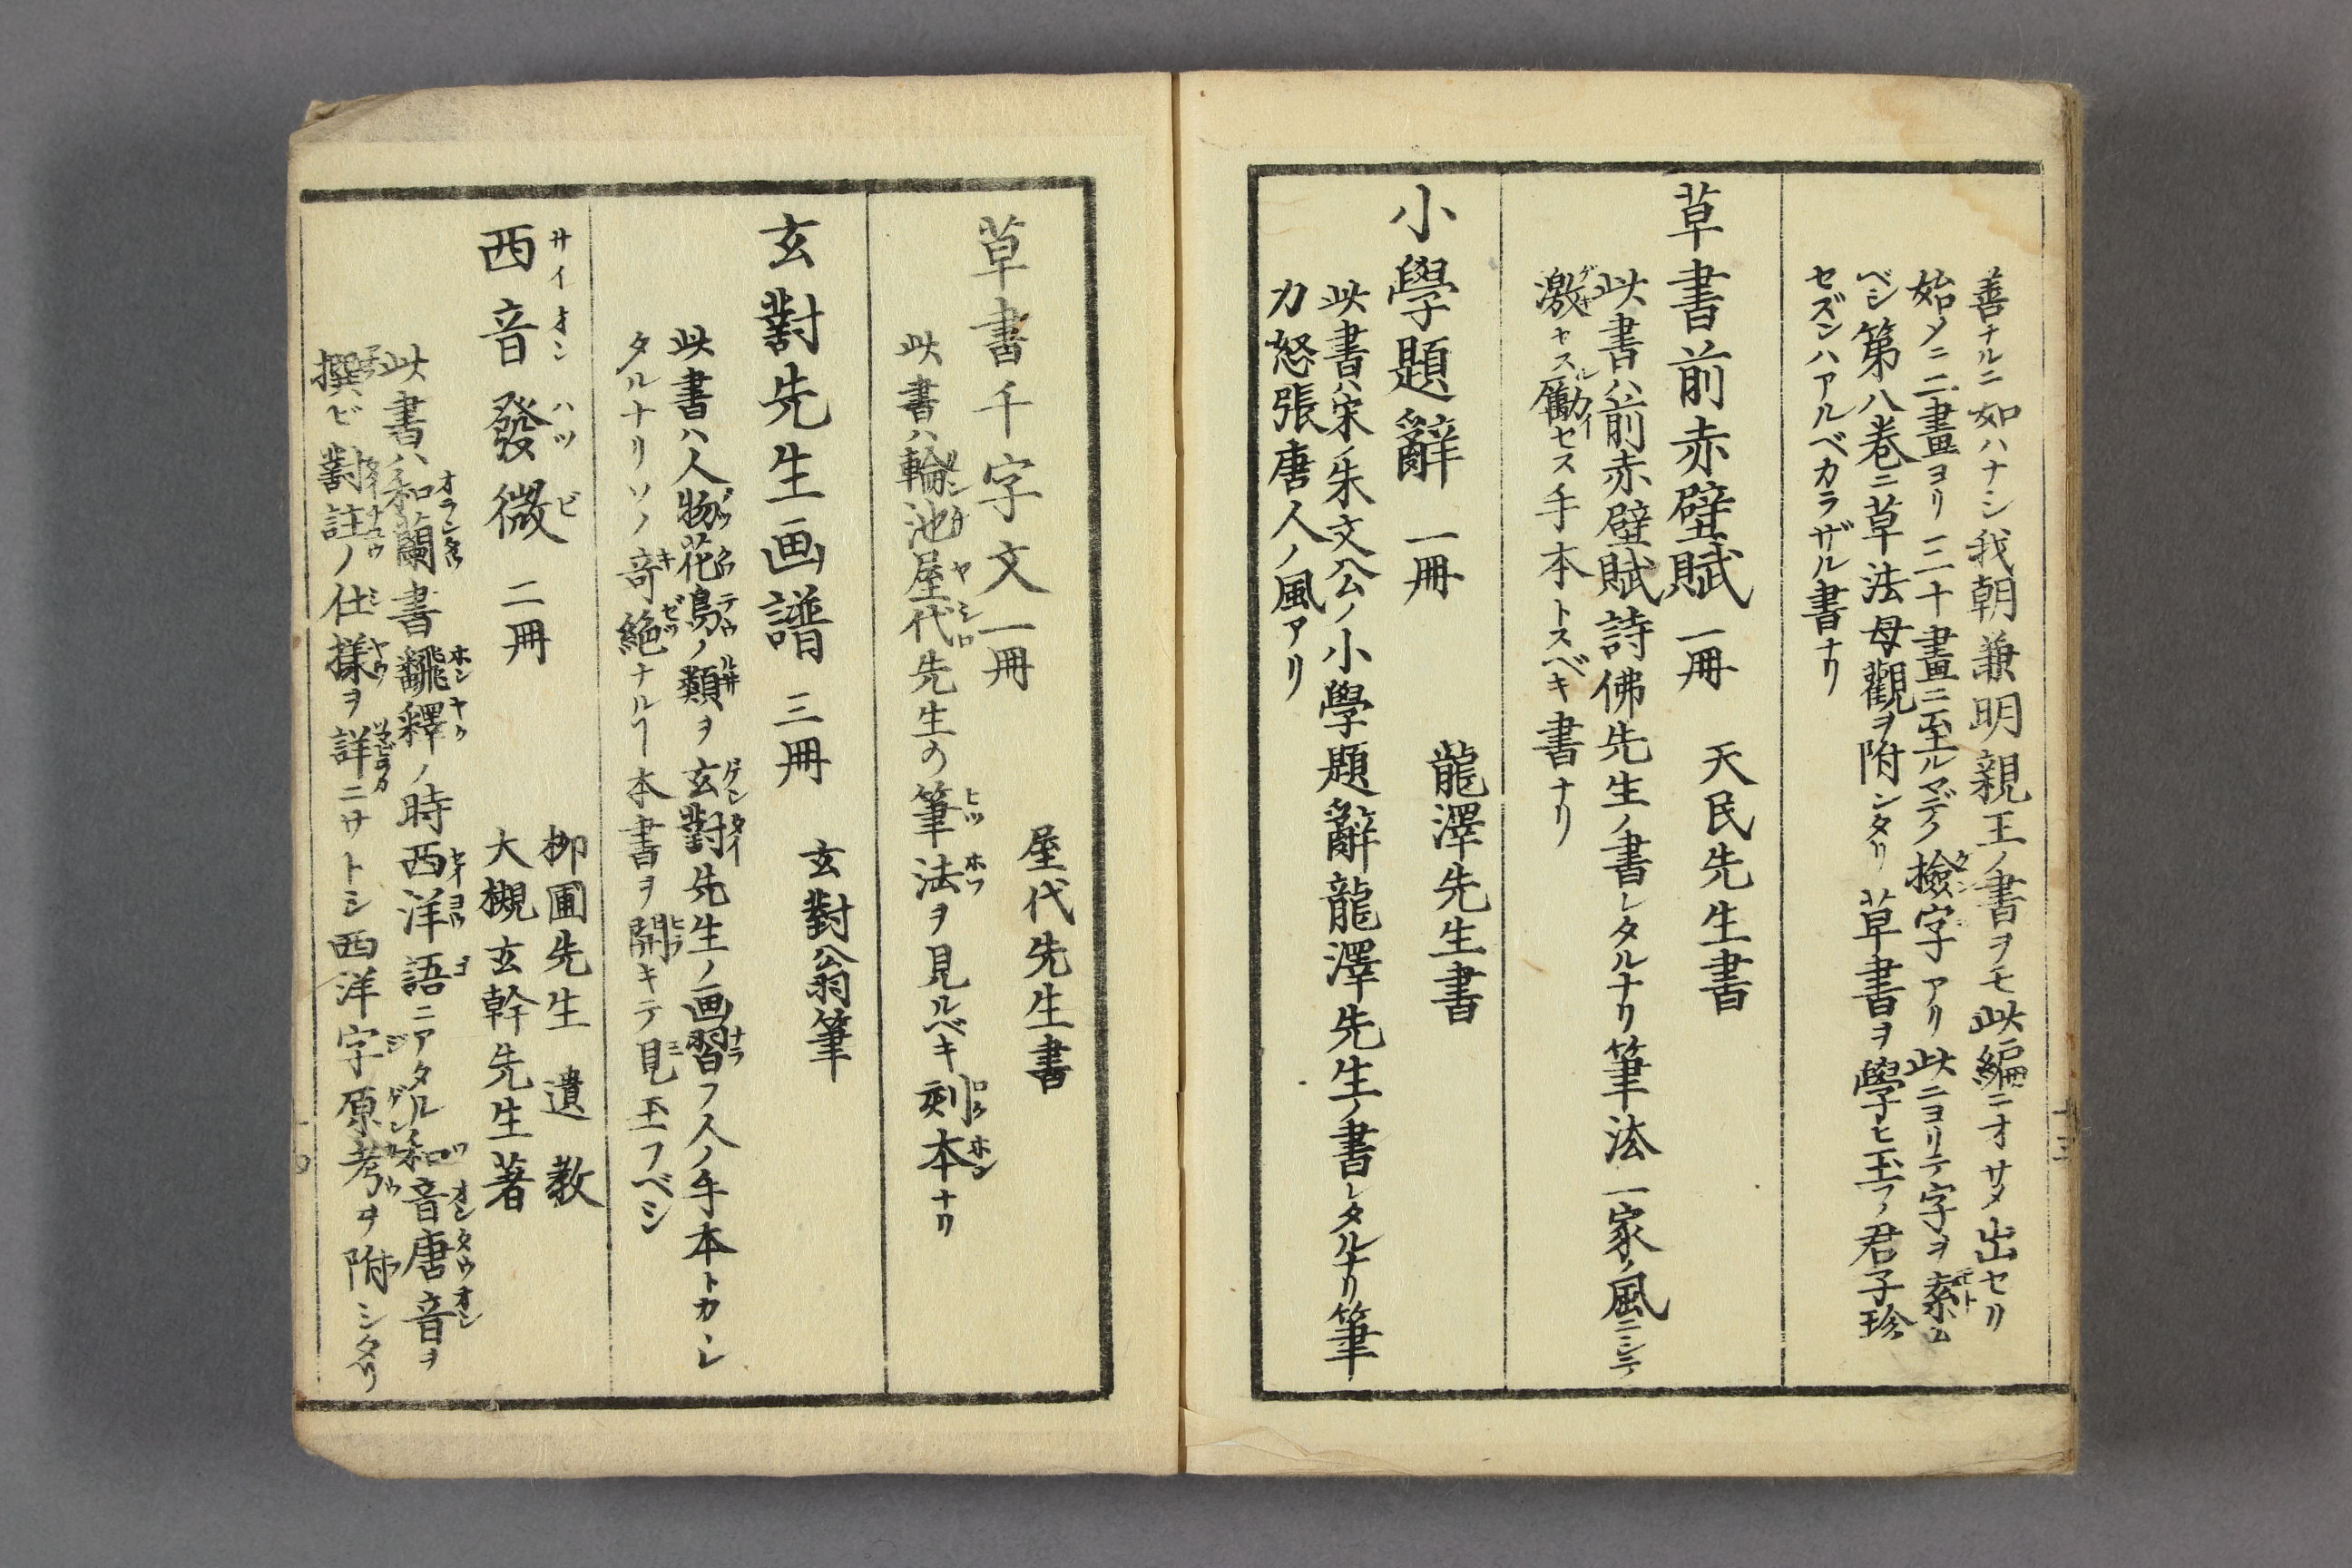 善ナルニ如ハナシ我朝兼明親王ノ書ヲモ此編ニオサメ出セリ
始メニ二畫ヨリ三十畫ニ至ルマデノ檢字アリ此ニヨリテ字ヲ索ム
ベシ第八巻ニ草法母觀ヲ附シタリ草書ヲ學ヒ玉フノ君子珍
セズンハアルベカラザル書ナリ
草書前赤壁賦 一冊 天民先生書
此書ハ前赤壁賦詩佛先生ノ書レタルナリ筆法一家ノ風ニシテ
激ヤスル勵セス手本トスベキ書ナリ
小學題辭 一冊 龍澤先生書
此書ハ宋ノ朱文公ノ小學題辭龍澤先生ノ書レタルナリ筆
力怒張唐人ノ風アリ
草書千字文一冊 屋代先生書
此書ハ輪池屋代先生の筆法ヲ見ルベキ刻本ナリ
玄對先生画譜 三冊 玄對翁筆
此書ハ人物花鳥ノ類ヲ玄對先生ノ画習フ人ノ手本トカレ
タルナリソノ竒絶ナルヿ本書ヲ開キテ見玉フベシ
西音發微 二冊
サイオンハツビ
柳圃先生 遺教
大槻玄幹先生著
此書ハ和蘭書飜釋ノ時西洋語ニアタル和音唐音ヲ
撰ビ對註ノ仕様ヲ詳ニサトシ西洋字原考ヲ附シタリ